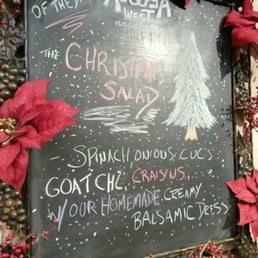 OF THEY
WEST
THE
CHRISTMAS
SALAD
- SPINACH ONIONS, CUCS
GOAT CHZ, CRAISINS,
W/ OUR HOMEMADE CREAMY
BALSAMIC DRESS